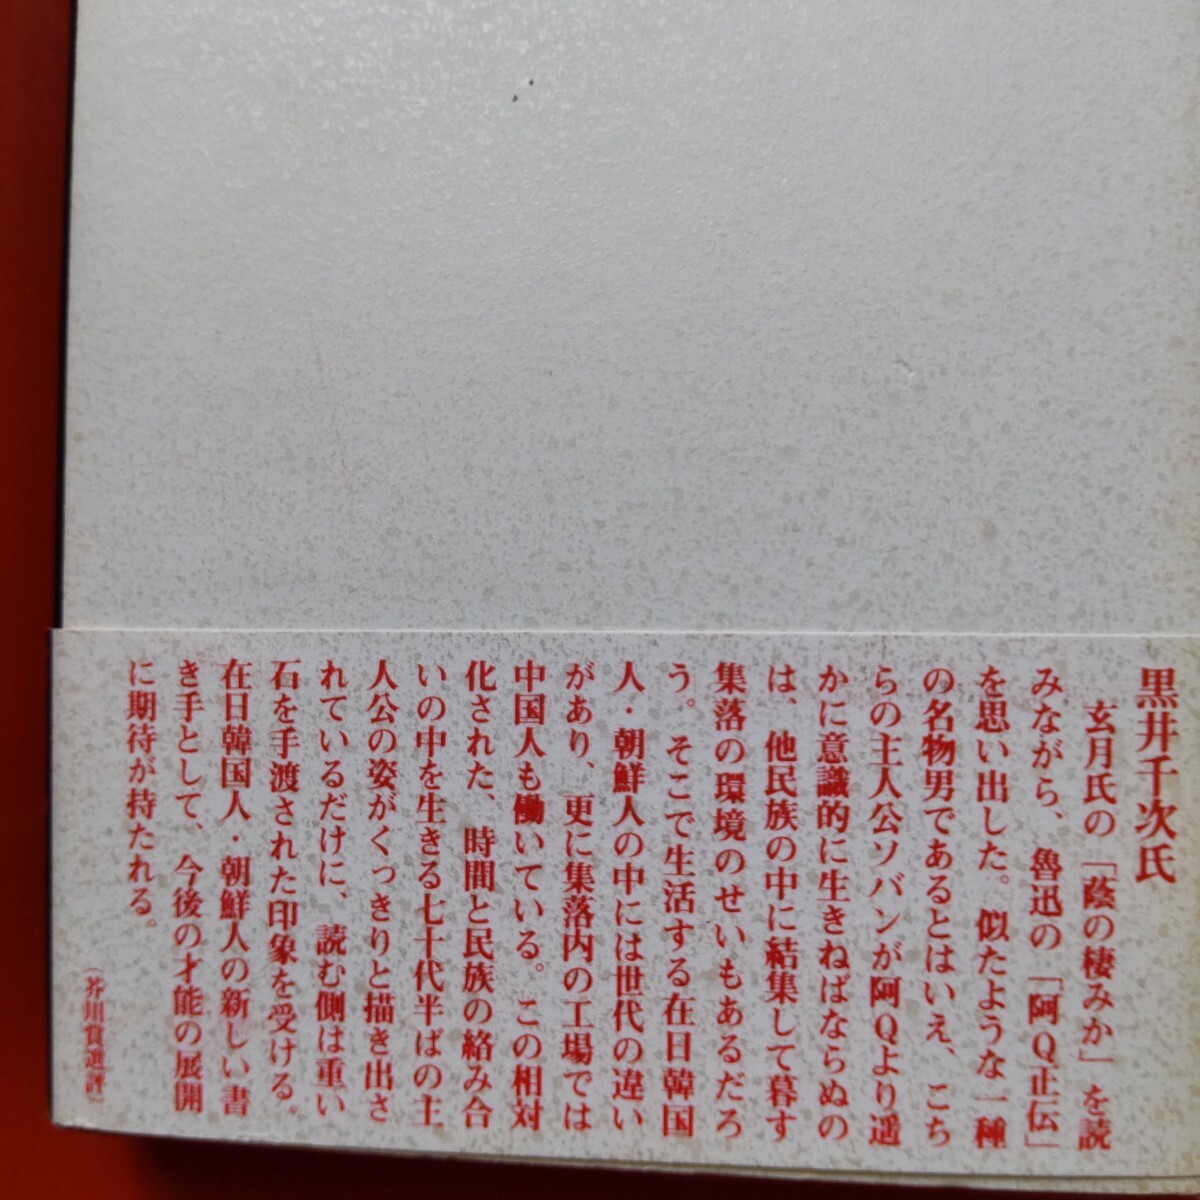 黒井千次氏
玄月氏の「蔭の棲みか」を読
みながら、魯迅の「阿Q正伝」
を思い出した。似たような一種
の名物男であるとはいえ、こち
らの主人公ソバンが阿Qより遥
かに意識的に生きねばならぬの
は、他民族の中に結集して暮す
集落の環境のせいもあるだろ
う。そこで生活する在日韓国
人・朝鮮人の中には世代の違い
があり、更に集落内の工場では
中国人も働いている。この相対
化された、時間と民族の絡み合
いの中を生きる七十代半ばの主
人公の姿がくっきりと描き出さ
れているだけに、読む側は重い
石を手渡された印象を受ける。
在日韓国人・朝鮮人の新しい書
き手として、今後の才能の展開
に期待が持たれる。
（芥川賞選評）